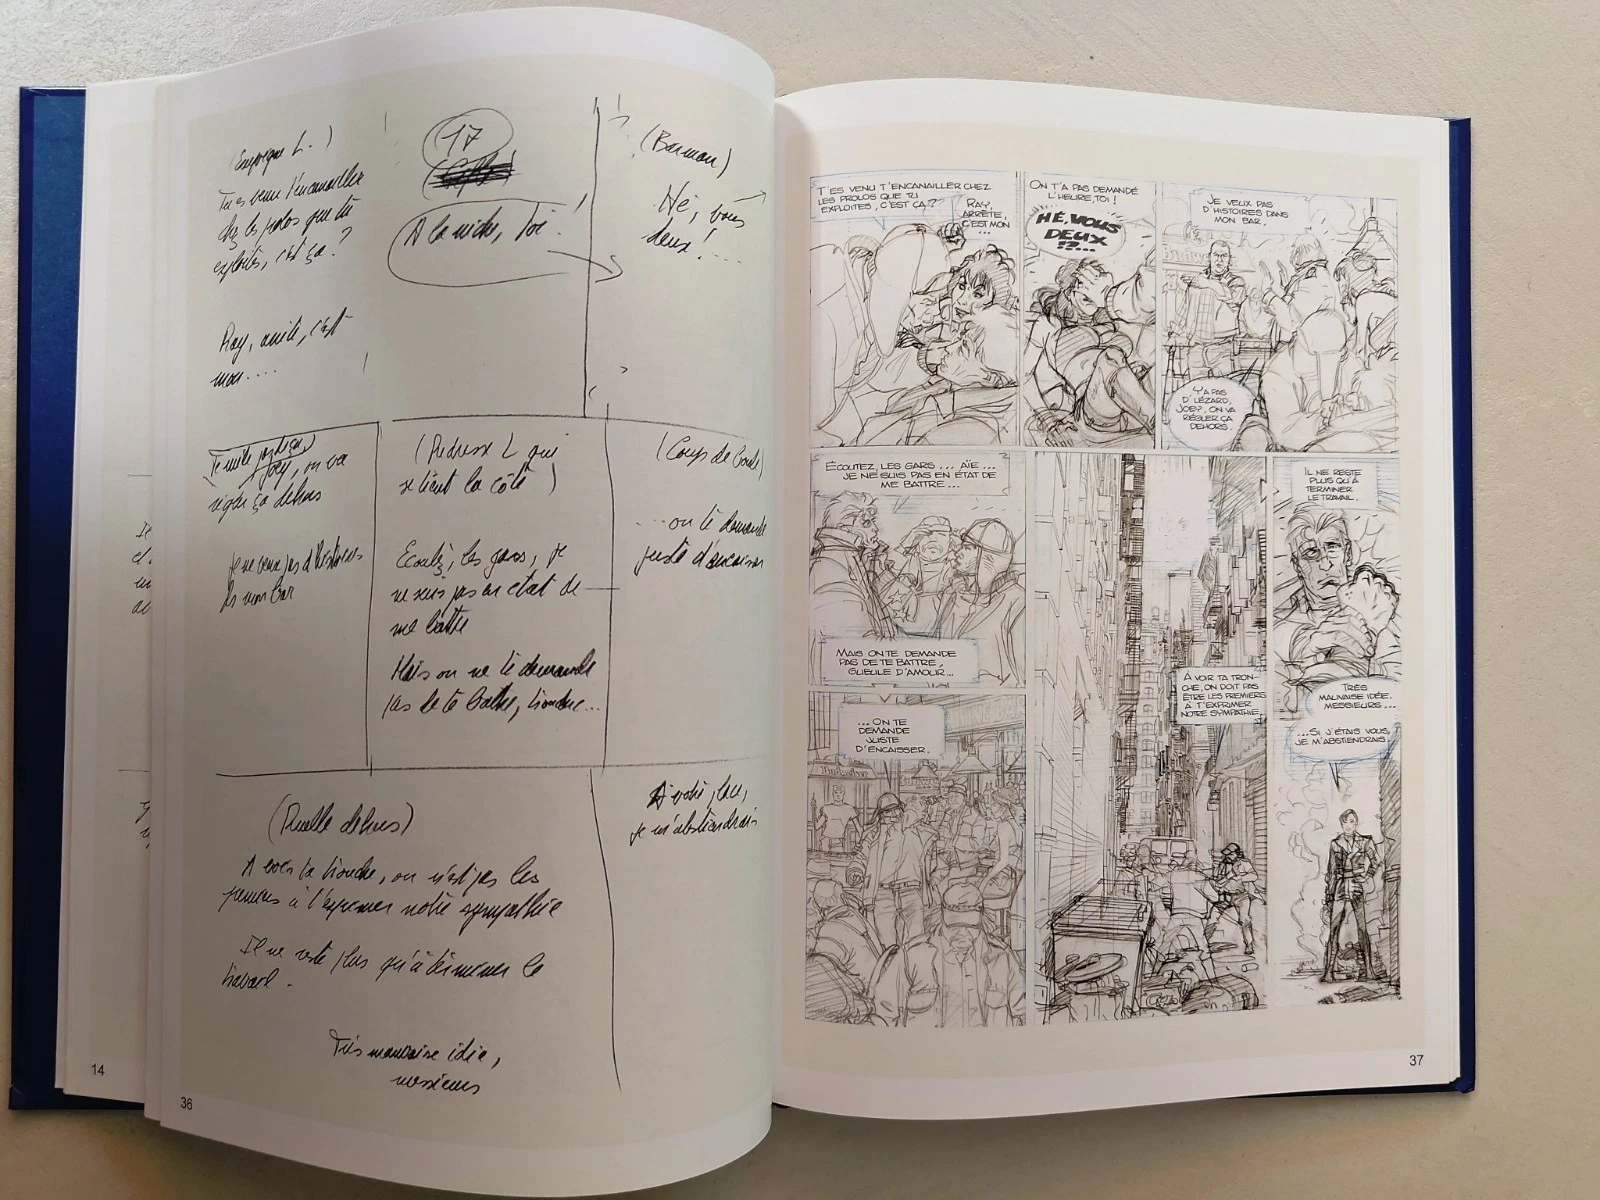 (Empoigne L.)
Tu es venu t'encanailler
chez les prolos que tu
exploites, c'est ça ?
Ray, arrête, c'est
mon....
17
A la niche, toi !
(Barman)
Hé, vous
deux !....
Joey, on va
régler ça dehors
je ne veux pas d'histoires
ds mon bar
(Redresse L qui
se tient la côte)
Ecoutez, les gars, je
ne suis pas en état de
me battre
Mais on ne te demande
pas de te battre, tronche...
(Coup de boule)
... on te demande
juste d'encaisser
(Ruelle dehors)
A voir ta tronche, on n'est pas les
premiers à t'exprimer notre sympathie
Il ne reste plus qu'à terminer le
travail.
Très mauvaise idée,
messieurs
A votre place,
je m'abstiendrais
14
36
T'ES VENU T'ENCANAILLER CHEZ
LES PROLOS QUE TU
EXPLOITES, C'EST ÇA ??
RAY,
ARRÊTE,
C'EST MON
...
ON T'A PAS DEMANDÉ
L'HEURE, TOI !
HÉ, VOUS
DEUX
!?...
JE VEUX PAS
D'HISTOIRES DANS
MON BAR.
Y'A PAS
D'LÉZARD,
JOEY, ON VA
RÉGLER ÇA
DEHORS.
ÉCOUTEZ, LES GARS... AÏE...
JE NE SUIS PAS EN ÉTAT DE
ME BATTRE...
MAIS ON TE DEMANDE
PAS DE TE BATTRE,
GUEULE D'AMOUR...
...ON TE
DEMANDE
JUSTE
D'ENCAISSER.
Budweiser
À VOIR TA TRON-
CHE, ON DOIT PAS
ÊTRE LES PREMIERS
À T'EXPRIMER
NOTRE SYMPATHIE.
IL NE RESTE
PLUS QU'À
TERMINER
LE TRAVAIL.
TRÈS
MAUVAISE IDÉE,
MESSIEURS...
...SI J'ÉTAIS VOUS,
JE M'ABSTIENDRAIS
37